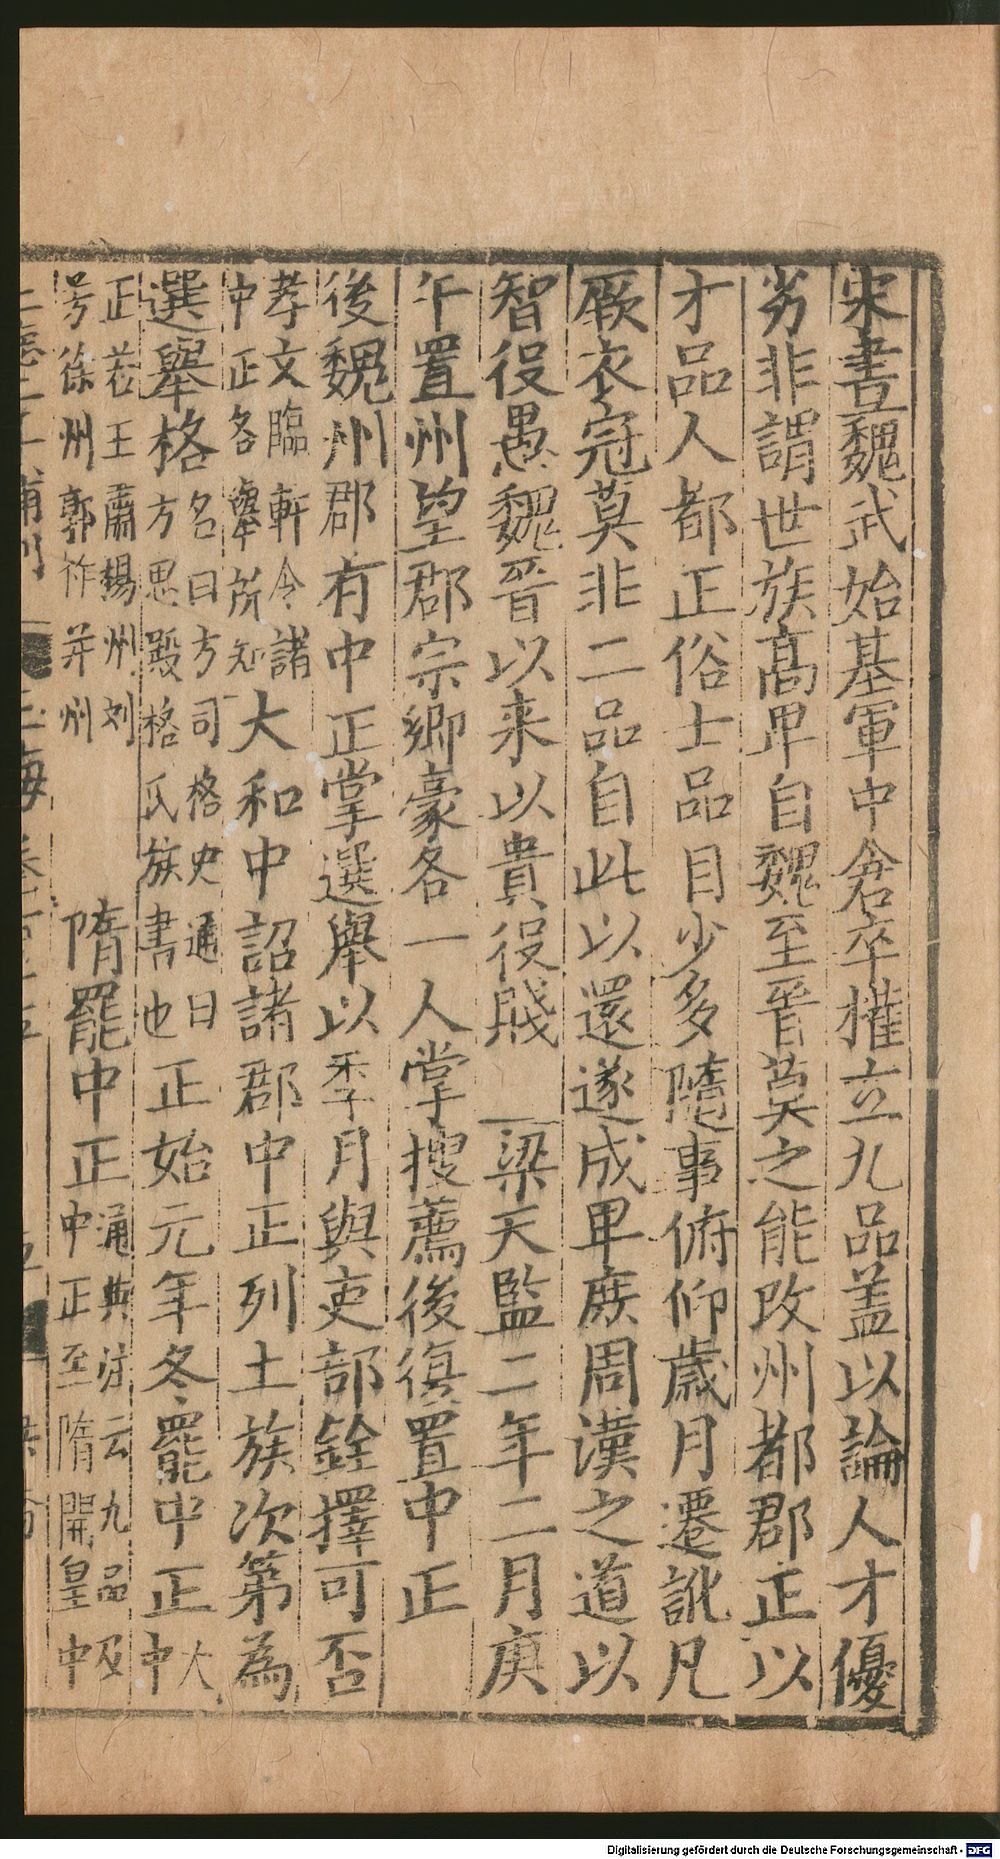 宋書魏武始基軍中倉卒權立九品盖以論人才優
劣非謂世族髙卑自魏至晉莫之能改州都郡正以
才品人都正俗士品目少多隨事俯仰歳月遷訛凡
厥衣冠莫非二品自此以還遂成卑庶周漢之道以
智役愚魏晉以来以貴役賤　梁天監二年二月庚
午置州望郡宗鄉豪各一人掌搜薦後復置中正
後魏州郡有中正掌選舉以季月與吏部銓擇可否
孝文臨軒令諸
中正各舉所知
大和中詔諸郡中正列士族次第為
選舉格
名曰方司格史通曰
方思毀格氏族書也
正始元年冬罷中正
大
中
正
王肅揚州刘
徐州郭祚并州
隋罷中正
通典注云九品及
中正至隋開皇中
Digitalisierung gefördert durch die Deutsche Forschungsgemeinschaft - DFG